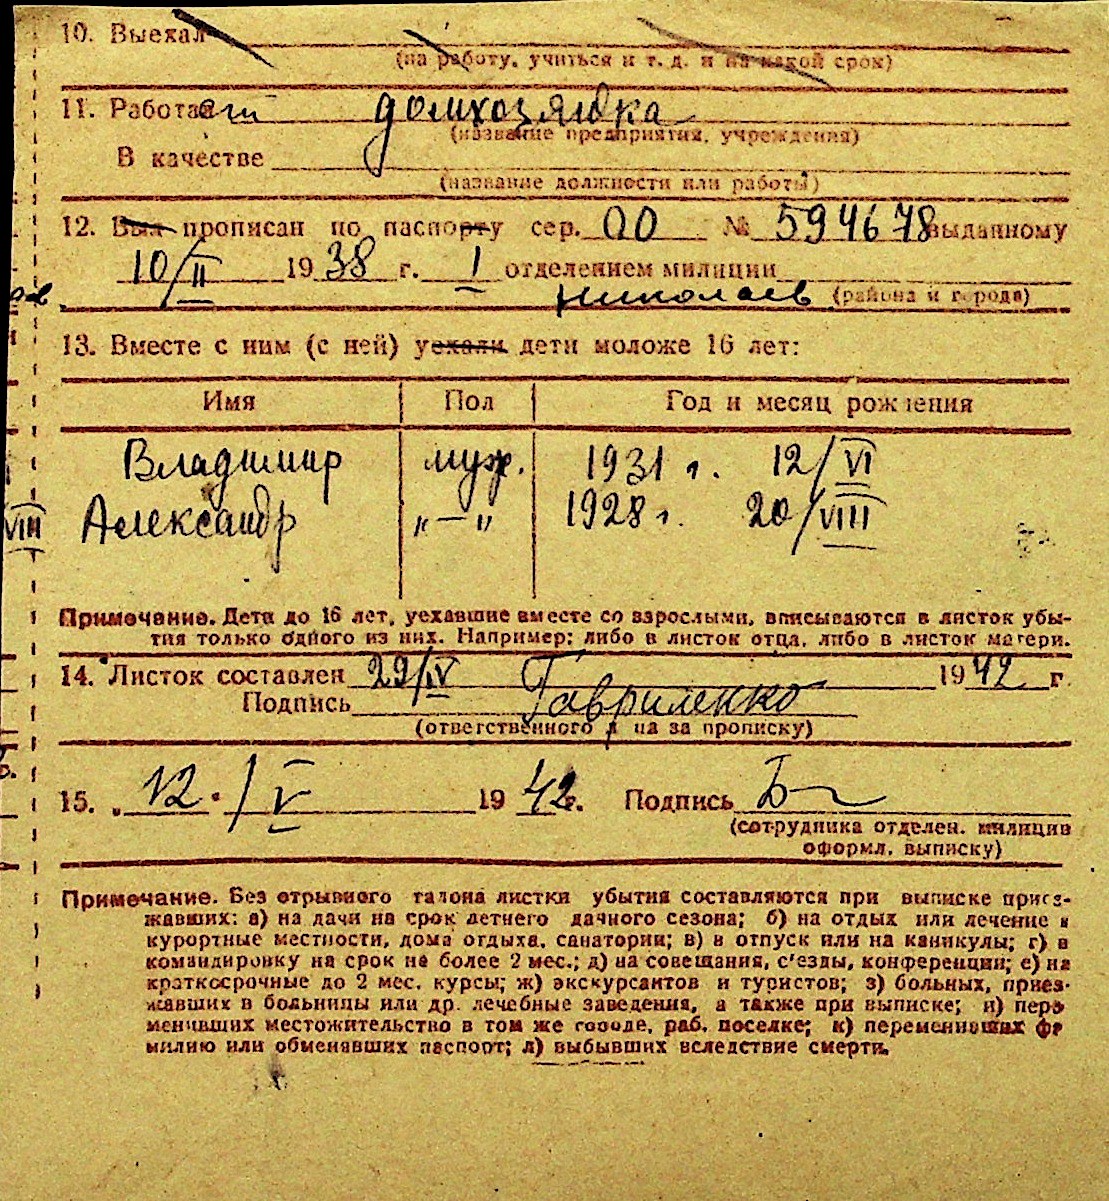 10. Выехал
(на работу, учиться и т. д. и на какой срок)
11. Работает домхозяйка
(название предприятия, учреждения)
В качестве
(название должности или работы)
12. Был прописан по паспорту сер. ОО № 594678 выданному
10/II 1938 г. I отделением милиции
Николаев (района и города)
13. Вместе с ним (с ней) уехали дети моложе 16 лет:
Имя Пол Год и месяц рождения
Владимир муж. 1931 г. 12/VI
VIII Александр "—" 1928 г. 20/VIII
Примечание. Дети до 16 лет, уехавшие вместе со взрослыми, вписываются в листок убы-
тия только одного из них. Например: либо в листок отца, либо в листок матери.
14. Листок составлен 29/IV 1942 г
Подпись Гавриленко
(ответственного л ца за прописку)
15. „12" / V 1942 г. Подпись
(сотрудника отделен. милиции
оформл. выписку)
Примечание. Без отрывного талона листки убытия составляются при выписке приез-
жавших: а) на дачи на срок летнего дачного сезона; б) на отдых или лечение в
курортные местности, дома отдыха, санатории; в) в отпуск или на каникулы; г) в
командировку на срок не более 2 мес.; д) на совещания, с'езды, конференции; е) на
краткосрочные до 2 мес. курсы; ж) экскурсантов и туристов; з) больных, приез-
жавших в больницы или др. лечебные заведения, а также при выписке; и) пере
менивших местожительство в том же городе, раб. поселке; к) переменивших фа
милию или обменявших паспорт; л) выбывших вследствие смерти.